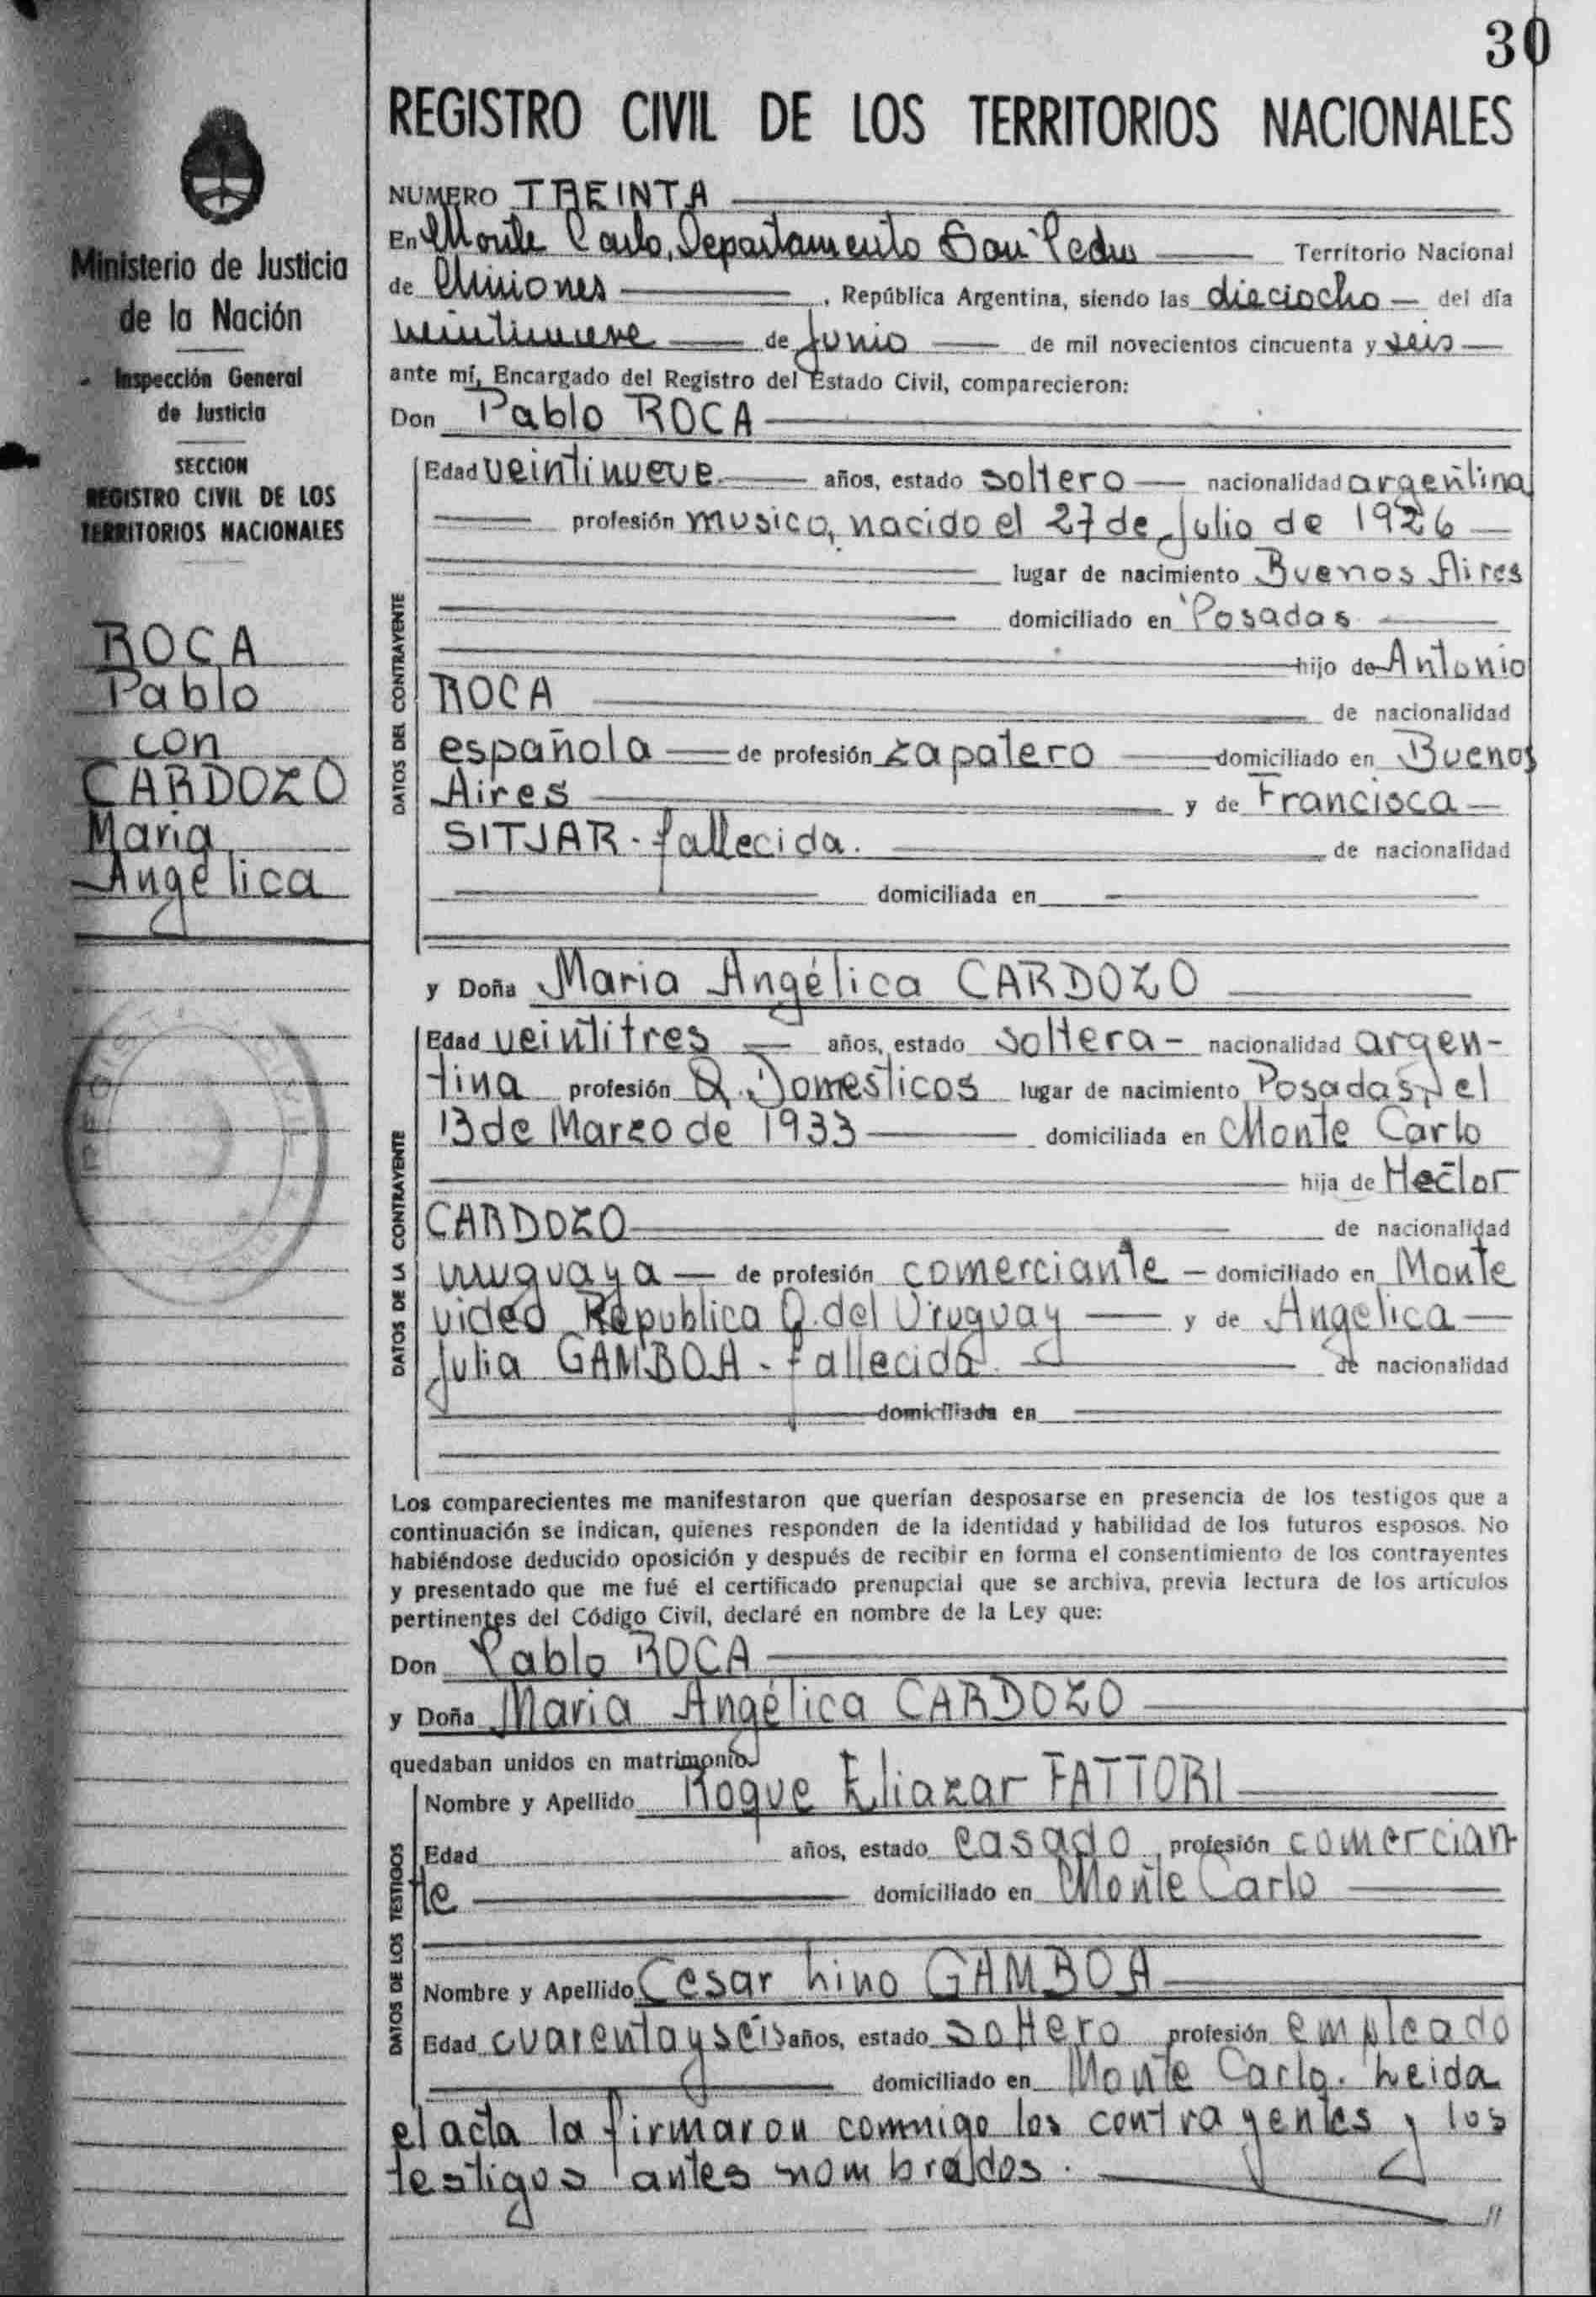 30
REGISTRO CIVIL DE LOS TERRITORIOS NACIONALES
Ministerio de Justicia
de la Nación
Inspección General
de Justicia
SECCION
REGISTRO CIVIL DE LOS
TERRITORIOS NACIONALES
ROCA
Pablo
con
CARDOZO
Maria
Angelica
NUMERO TREINTA
En Monte Carlo, Departamento San Pedro Territorio Nacional
de Misiones , República Argentina, siendo las dieciocho del día
veintinueve de Junio de mil novecientos cincuenta y seis
ante mí, Encargado del Registro del Estado Civil, comparecieron:
Don Pablo ROCA
DATOS DEL CONTRAYENTE
Edad veintinueve años, estado soltero nacionalidad argentina
profesión musico, nacido el 27 de Julio de 1926
lugar de nacimiento Buenos Aires
domiciliado en Posadas
hijo de Antonio
ROCA de nacionalidad
española de profesión zapatero domiciliado en Buenos
Aires y de Francisca
SITJAR - fallecida. de nacionalidad
domiciliada en
y Doña Maria Angélica CARDOZO
DATOS DE LA CONTRAYENTE
Edad veintitres años, estado soltera - nacionalidad argen-
tina profesión Q. Domesticos lugar de nacimiento Posadas, el
13 de Marzo de 1933 domiciliada en Monte Carlo
hija de Hector
CARDOZO de nacionalidad
uruguaya de profesión comerciante - domiciliado en Monte
video Republica O. del Uruguay y de Angelica
Julia GAMBOA - fallecida. de nacionalidad
domiciliada en
Los comparecientes me manifestaron que querían desposarse en presencia de los testigos que a
continuación se indican, quienes responden de la identidad y habilidad de los futuros esposos. No
habiéndose deducido oposición y después de recibir en forma el consentimiento de los contrayentes
y presentado que me fué el certificado prenupcial que se archiva, previa lectura de los artículos
pertinentes del Código Civil, declaré en nombre de la Ley que:
Don Pablo ROCA
y Doña Maria Angélica CARDOZO
quedaban unidos en matrimonio.
DATOS DE LOS TESTIGOS
Nombre y Apellido Roque Eliazar FATTORI
Edad años, estado casado profesión comercian
te domiciliado en Monte Carlo
Nombre y Apellido Cesar Lino GAMBOA
Edad cuarenta y seis años, estado soltero profesión empleado
domiciliado en Monte Carlo. Leida
el acta la firmaron commigo los contrayentes y los
testigos antes nombrados.